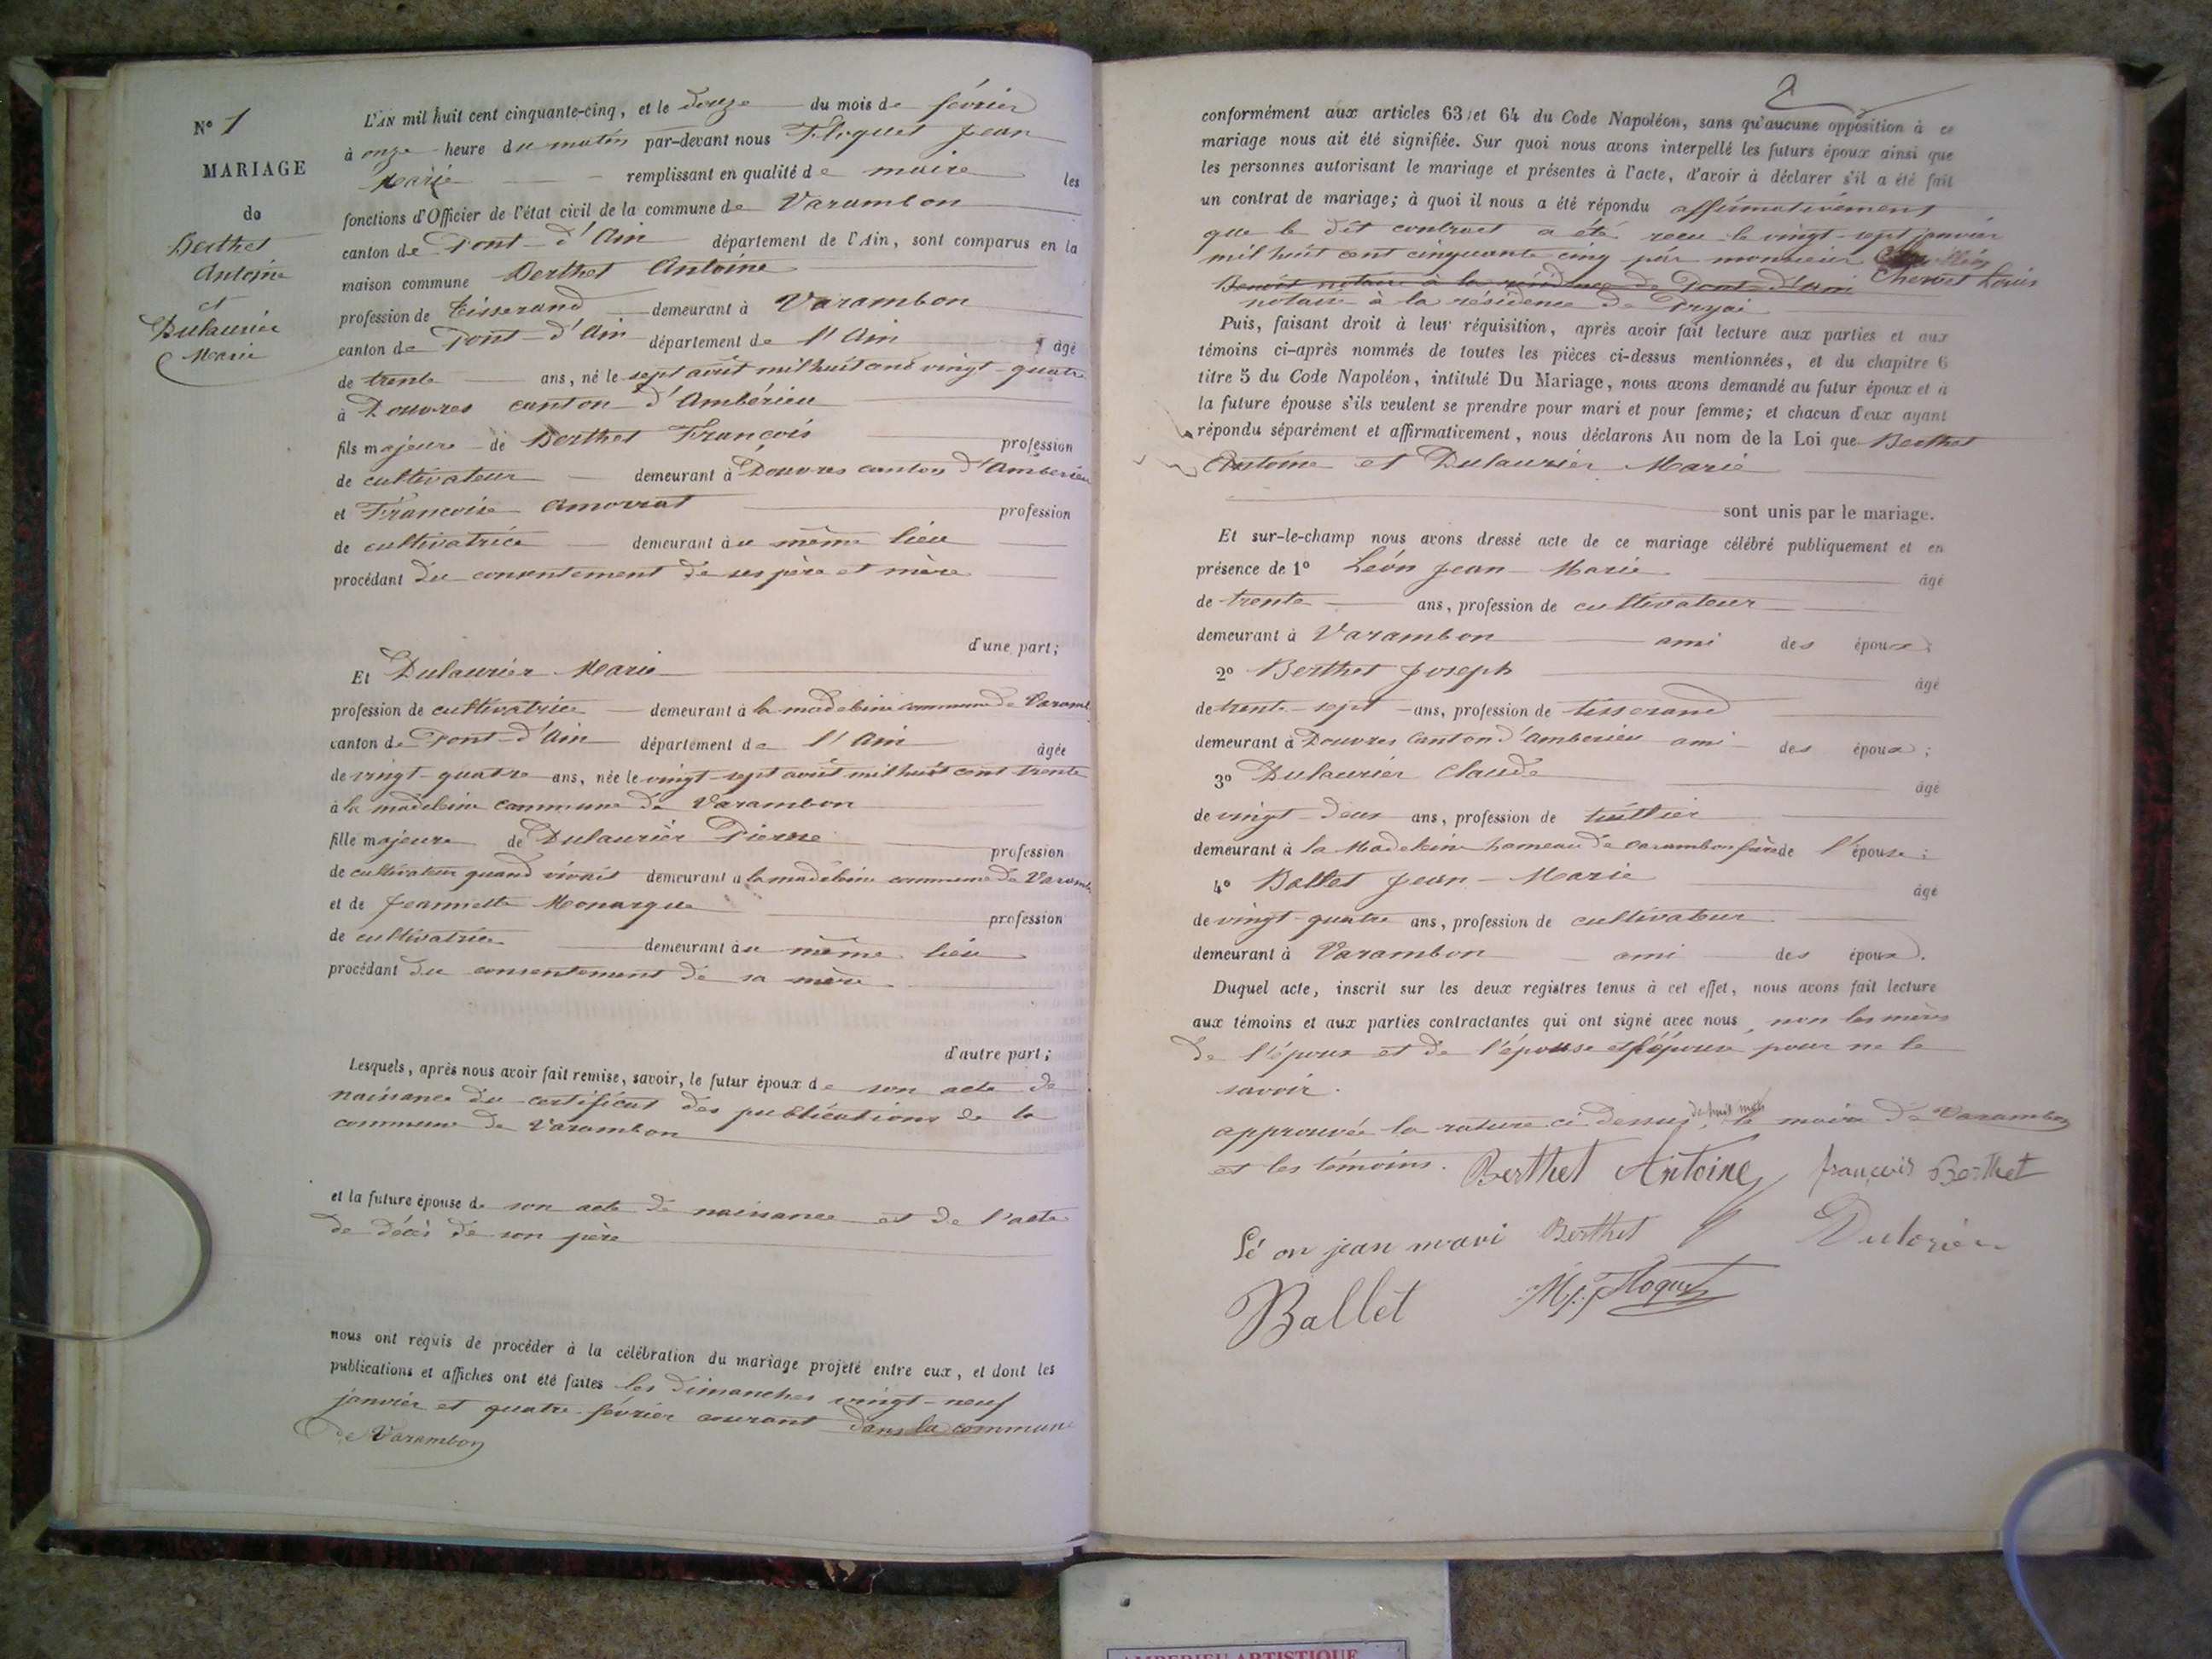 N° 1
MARIAGE
de
Berthet
Antoine
et
Dulaurier
Marie
L'AN mil huit cent cinquante-cinq, et le douze du mois de février
à onze heure du matin par-devant nous Floquet Jean
Marie remplissant en qualité de maire les
fonctions d'Officier de l'état civil de la commune de Varambon
canton de Pont-d'Ain département de l'Ain, sont comparus en la
maison commune Berthet Antoine
profession de tisserand demeurant à Varambon
canton de Pont-d'Ain département de l'Ain âgé
de trente ans, né le sept août mil huit cent vingt-quatre
à Douvres canton d'Ambérieu
fils majeur de Berthet François profession
de cultivateur demeurant à Douvres canton d'Ambérieu
et Françoise Amorrat profession
de cultivatrice demeurant au même lieu
procédant du consentement de ses père et mère
d'une part;
Et Dulaurier Marie
profession de cultivatrice demeurant à la madeleine commune de Varamb
canton de Pont-d'Ain département de l'Ain âgée
de vingt-quatre ans, née le vingt-sept août mil huit cent trente
à la madeleine commune de Varambon
fille majeure de Dulaurier Pierre profession
de cultivateur quand vivait demeurant à la madeleine commune de Varamb
et de Jeannette Monarque profession
de cultivatrice demeurant au même lieu
procédant du consentement de sa mère
d'autre part;
Lesquels, après nous avoir fait remise, savoir, le futur époux de son acte de
naissance du certificat des publications de la
commune de Varambon
et la future épouse de son acte de naissance et de l'acte
de décès de son père
nous ont requis de procéder à la célébration du mariage projeté entre eux, et dont les
publications et affiches ont été faites les dimanches vingt-neuf
janvier et quatre février courant dans la commune
de Varambon
2
conformément aux articles 63 et 64 du Code Napoléon, sans qu'aucune opposition à ce
mariage nous ait été signifiée. Sur quoi nous avons interpellé les futurs époux ainsi que
les personnes autorisant le mariage et présentes à l'acte, d'avoir à déclarer s'il a été fait
un contrat de mariage; à quoi il nous a été répondu affirmativement
que le dit contract a été reçu le vingt-sept janvier
mil huit cent cinquante cinq par monsieur
Benoit notaire à la résidence de Pont-d'Ain Chervet Louis
notaire à la résidence de
Puis, faisant droit à leur réquisition, après avoir fait lecture aux parties et aux
témoins ci-après nommés de toutes les pièces ci-dessus mentionnées, et du chapitre 6
titre 5 du Code Napoléon, intitulé Du Mariage, nous avons demandé au futur époux et à
la future épouse s'ils veulent se prendre pour mari et pour femme; et chacun d'eux ayant
répondu séparément et affirmativement, nous déclarons Au nom de la Loi que Berthet
Antoine et Dulaurier Marie
sont unis par le mariage.
Et sur-le-champ nous avons dressé acte de ce mariage célébré publiquement et en
présence de 1° Léon Jean-Marie âgé
de trente ans, profession de cultivateur
demeurant à Varambon ami des époux;
2° Berthet Joseph âgé
de trente-sept ans, profession de tisserand
demeurant à Douvres Canton d'Amberieu ami des époux;
3° Dulaurier Claude âgé
de vingt-deux ans, profession de tuillier
demeurant à la Madeleine hameau de Varambon frère de l'épouse;
4° Ballet Jean-Marie âgé
de vingt-quatre ans, profession de cultivateur
demeurant à Varambon ami des époux.
Duquel acte, inscrit sur les deux registres tenus à cet effet, nous avons fait lecture
aux témoins et aux parties contractantes qui ont signé avec nous, non les mères
de l'époux et de l'épouse et l'épouse pour ne le
savoir.
approuvée la rature ci dessus de huit mots le maire de Varambon
et les témoins. Berthet Antoine françois Berthet
Lé on jean mari Berthet Dulorier
Ballet M.J. Floquet
AMBERIEU ARTISTIQUE